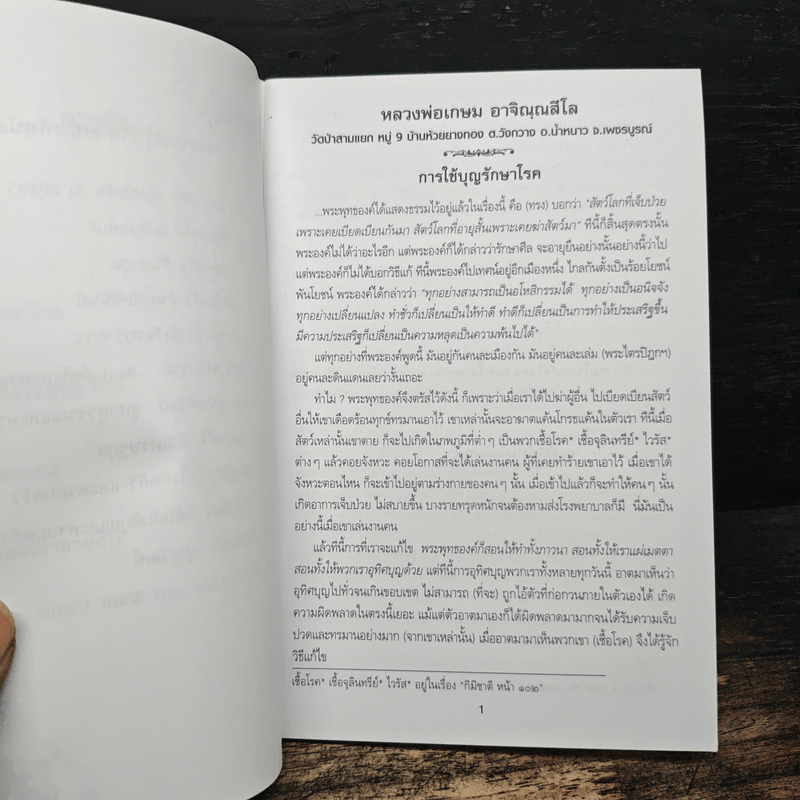 หลวงพ่อเกษม อาจิณฺณสีโล
วัดป่าสามแยก หมู่ 9 บ้านห้วยยางทอง ต.วังกวาง อ.น้ำหนาว จ.เพชรบูรณ์
การใช้บุญรักษาโรค
...พระพุทธองค์ได้แสดงธรรมไว้อยู่แล้วในเรื่องนี้ คือ (ทรง) บอกว่า "สัตว์โลกที่เจ็บป่วย
เพราะเคยเบียดเบียนกันมา สัตว์โลกที่อายุสั้นเพราะเคยฆ่าสัตว์มา" ทีนี้ก็สิ้นสุดตรงนั้น
พระองค์ไม่ได้ว่าอะไรอีก แต่พระองค์ก็ได้กล่าวว่ารักษาศีล จะอายุยืนอย่างนั้นอย่างนี้ว่าไป
แต่พระองค์ก็ไม่ได้บอกวิธีแก้ ทีนี้พระองค์ไปเทศน์อยู่อีกเมืองหนึ่ง ไกลกันตั้งเป็นร้อยโยชน์
พันโยชน์ พระองค์ได้กล่าวว่า "ทุกอย่างสามารถเป็นอโหสิกรรมได้ ทุกอย่างเป็นอนิจจัง
ทุกอย่างเปลี่ยนแปลง ทำชั่วก็เปลี่ยนเป็นให้ทำดี ทำดีก็เปลี่ยนเป็นการทำให้ประเสริฐขึ้น
มีความประเสริฐก็เปลี่ยนเป็นความหลุดเป็นความพ้นไปได้"
แต่ทุกอย่างที่พระองค์พูดนี้ มันอยู่กันคนละเมืองกัน มันอยู่คนละเล่ม (พระไตรปิฎกฯ)
อยู่คนละดินแดนเลยว่างั้นเถอะ
ทำไม ? พระพุทธองค์จึงตรัสไว้ดังนี้ ก็เพราะว่าเมื่อเราได้ไปฆ่าผู้อื่น ไปเบียดเบียนสัตว์
อื่นให้เขาเดือดร้อนทุกข์ทรมานเอาไว้ เขาเหล่านั้นจะอาฆาตแค้นโกรธแค้นในตัวเรา ทีนี้เมื่อ
สัตว์เหล่านั้นเขาตาย ก็จะไปเกิดในภพภูมิที่ต่ำๆ เป็นพวกเชื้อโรค* เชื้อจุลินทรีย์* ไวรัส*
ต่างๆ แล้วคอยจังหวะ คอยโอกาสที่จะได้เล่นงานคน ผู้ที่เคยทำร้ายเขาเอาไว้ เมื่อเขาได้
จังหวะตอนไหน ก็จะเข้าไปอยู่ตามร่างกายของคนๆ นั้น เมื่อเข้าไปแล้วก็จะทำให้คนๆ นั้น
เกิดอาการเจ็บป่วย ไม่สบายขึ้น บางรายทรุดหนักจนต้องหามส่งโรงพยาบาลก็มี นี่มันเป็น
อย่างนี้เมื่อเขาเล่นงานคน
แล้วทีนี้การที่เราจะแก้ไข พระพุทธองค์ก็สอนให้ทำทั้งภาวนา สอนทั้งให้เราแผ่เมตตา
สอนทั้งให้พวกเราอุทิศบุญด้วย แต่ทีนี้การอุทิศบุญพวกเราทั้งหลายทุกวันนี้ อาตมาเห็นว่า
อุทิศบุญไปทั่วจนเกินขอบเขต ไม่สามารถ (ที่จะ) ถูกไอ้ตัวที่ก่อกวนภายในตัวเองได้ เกิด
ความผิดพลาดในตรงนี้เยอะ แม้แต่ตัวอาตมาเองก็ได้ผิดพลาดมามากจนได้รับความเจ็บ
ปวดและทรมานอย่างมาก (จากเขาเหล่านั้น) เมื่ออาตมามาเห็นพวกเขา (เชื้อโรค) จึงได้รู้จัก
วิธีแก้ไข
เชื้อโรค* เชื้อจุลินทรีย์* ไวรัส* อยู่ในเรื่อง "กิมิชาติ หน้า ๑๐๒"
1